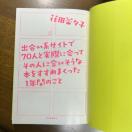 花田菜々子
出会い系サイトで
70人と実際に会って
その人に合いそうな
本をすすめまくった
1年間のこと